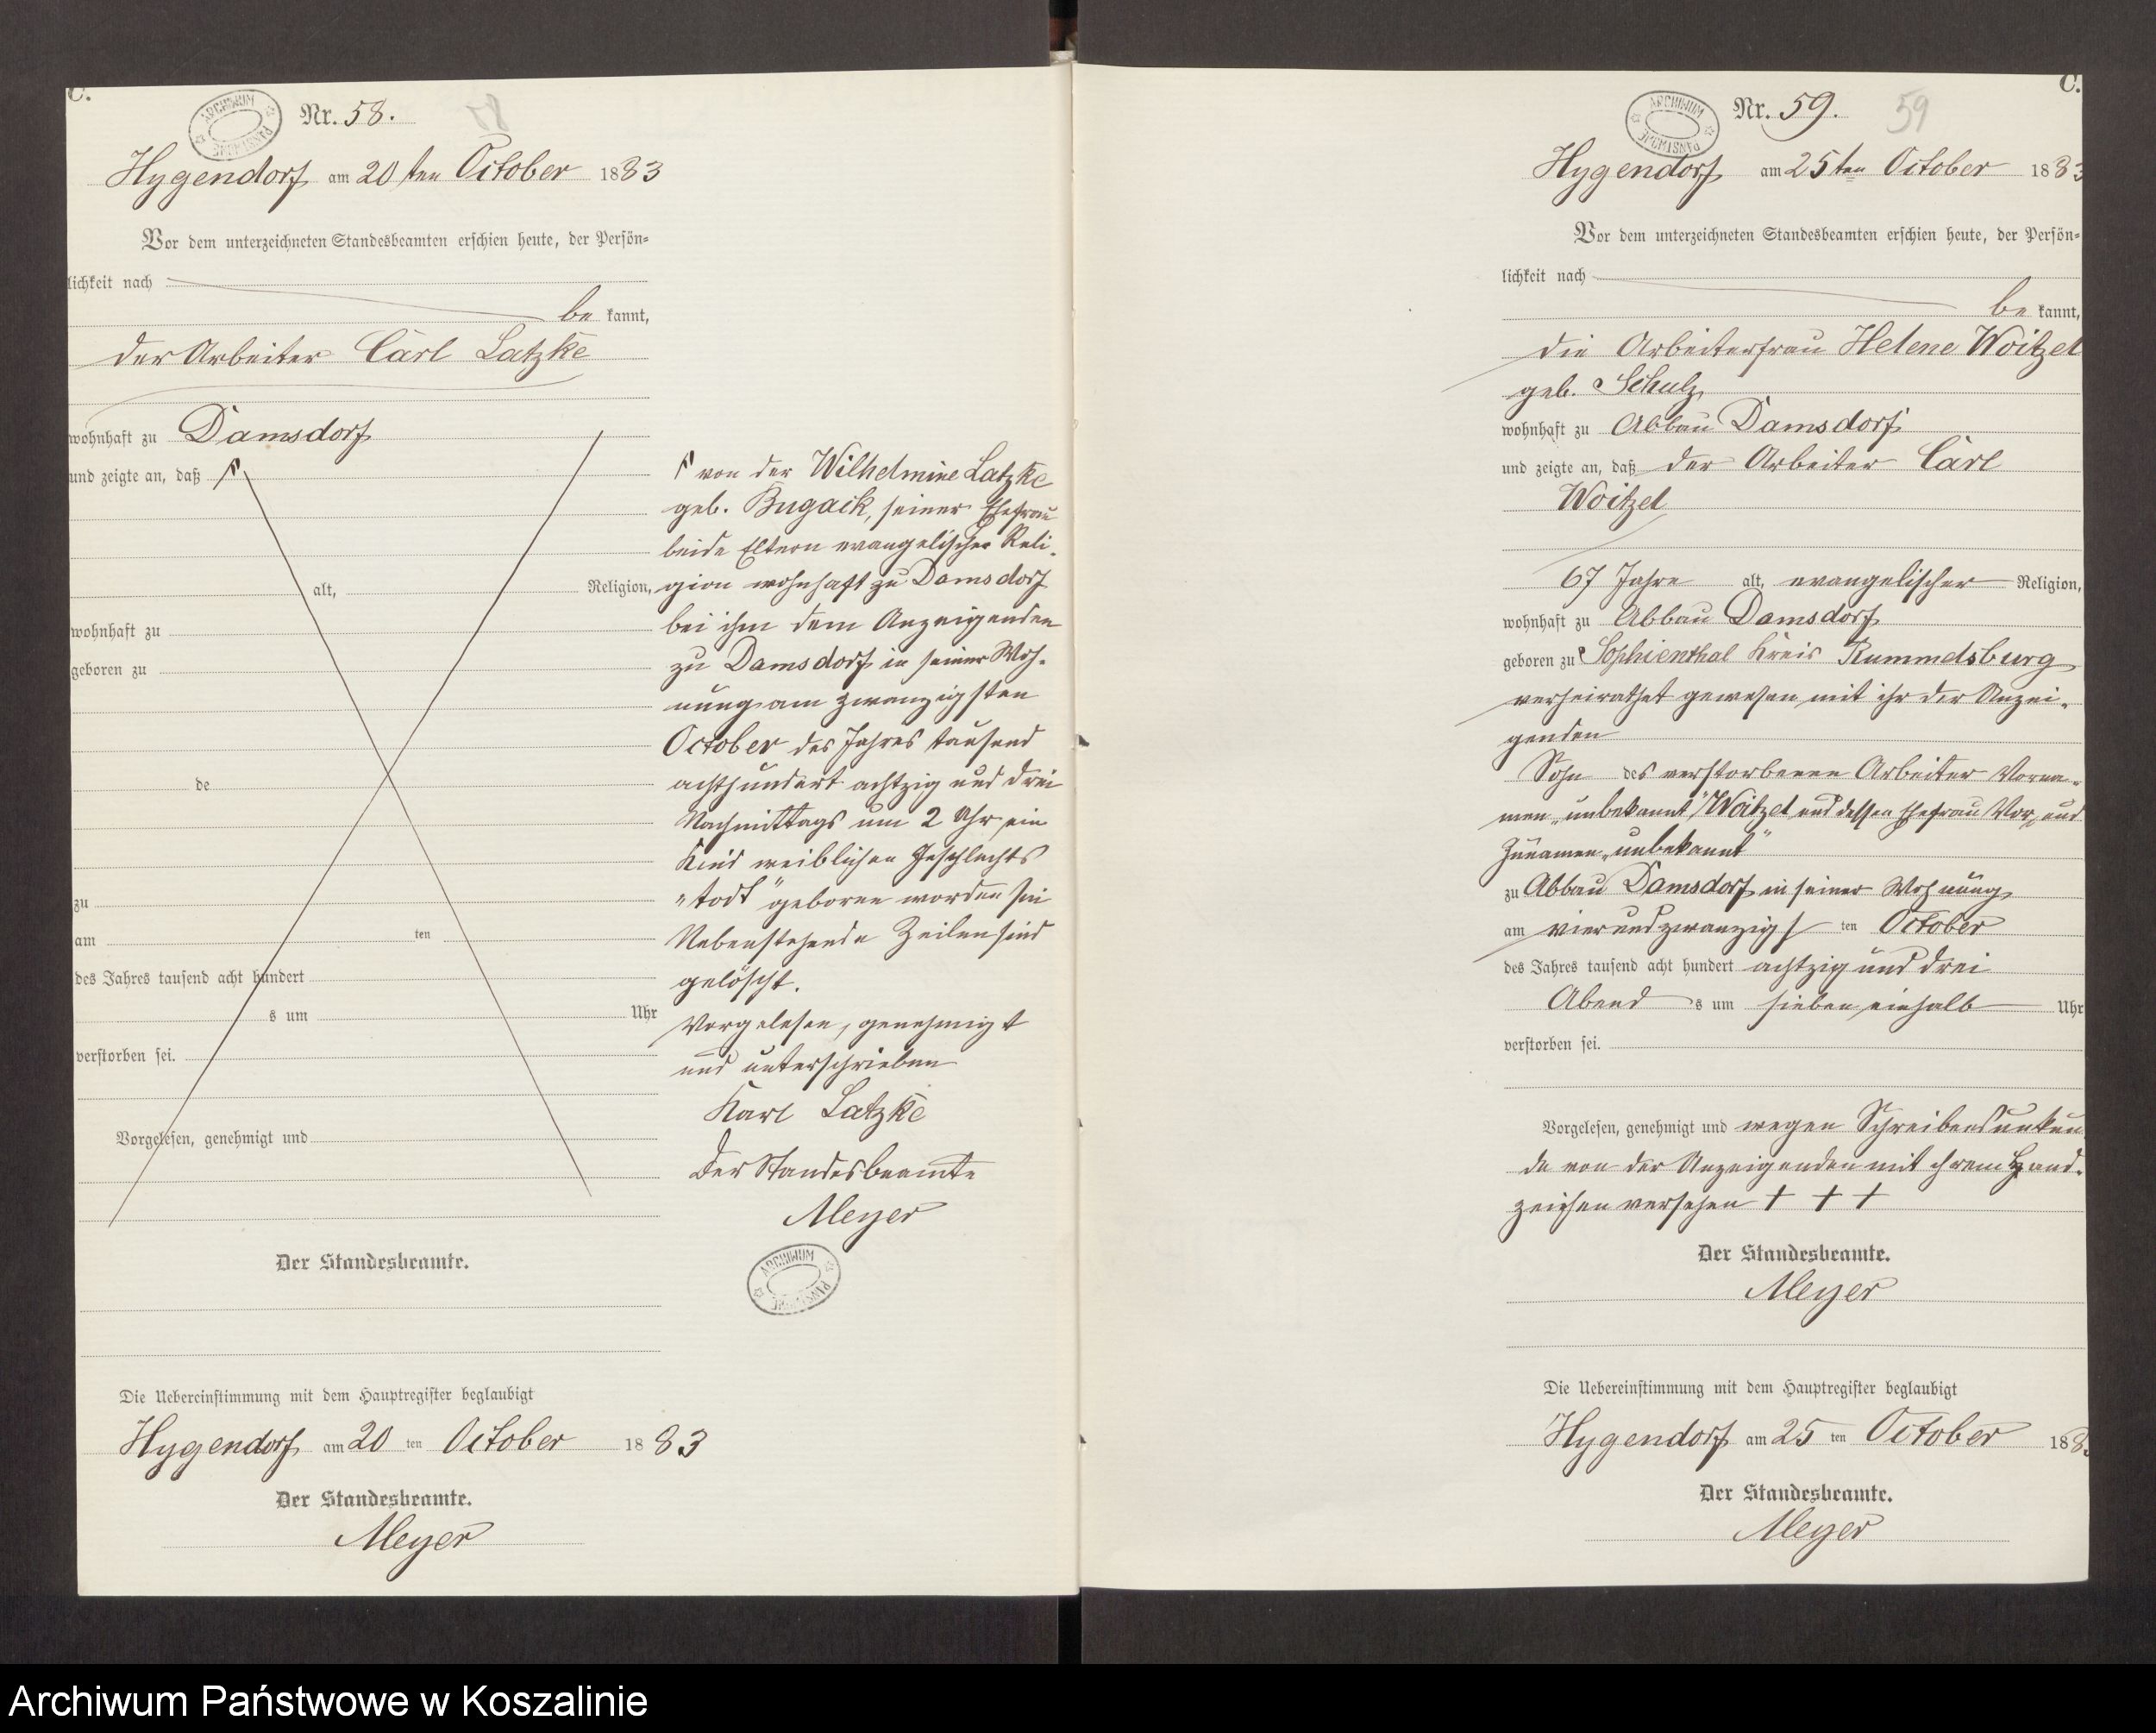 C.
ARCHIWUM PAŃSTWOWE
Nr. 58.
58
Hygendorf am 20ten October 1883
Vor dem unterzeichneten Standesbeamten erschien heute, der Persön=
lichkeit nach
be kannt,
der Arbeiter Carl Latzke
wohnhaft zu Damsdorf
und zeigte an, daß
alt, Religion,
wohnhaft zu
geboren zu
de
zu
am ten
des Jahres tausend acht hundert
s um Uhr
verstorben sei.
Vorgelesen, genehmigt und
Der Standesbeamte.
von der Wilhelmine Latzke
geb. Bugack, seiner Ehefrau
beide Eltern evangelischer Reli-
gion wohnhaft zu Damsdorf
bei ihm dem Anzeigenden
zu Damsdorf in seiner Woh-
nung am zwanzigsten
October des Jahres tausend
achthundert achtzig und drei
Nachmittags um 2 Uhr ein
Kind weiblichen Geschlechts
"todt" geboren worden sei
Nebenstehende Zeilen sind
gelöscht.
Vorgelesen, genehmigt
und unterschrieben
Karl Latzke
Der Standesbeamte
Meyer
ARCHIWUM PAŃSTWOWE
Die Uebereinstimmung mit dem Hauptregister beglaubigt
Hygendorf am 20 ten October 1883
Der Standesbeamte.
Meyer
C.
ARCHIWUM PAŃSTWOWE
Nr. 59.
59
Hygendorf am 25ten October 1883
Vor dem unterzeichneten Standesbeamten erschien heute, der Persön=
lichkeit nach
be kannt,
die Arbeiterfrau Helene Woitzel
geb. Schulz
wohnhaft zu Abbau Damsdorf
und zeigte an, daß der Arbeiter Carl
Woitzel
67 Jahre alt, evangelischer Religion,
wohnhaft zu Abbau Damsdorf
geboren zu Sophienthal Kreis Rummelsburg
verheirathet gewesen mit ihr der Anzei-
genden
Sohn des verstorbenen Arbeiter Vorna-
men "unbekannt" Woitzel und dessen Ehefrau Vor- und
Zunamen "unbekannt"
zu Abbau Damsdorf in seiner Wohnung
am vierundzwanzigs ten October
des Jahres tausend acht hundert achtzig und drei
Abend s um sieben einhalb Uhr
verstorben sei.
Vorgelesen, genehmigt und wegen Schreibensunkun
de von der Anzeigenden mit ihrem Hand-
zeichen versehen + + +
Der Standesbeamte.
Meyer
Die Uebereinstimmung mit dem Hauptregister beglaubigt
Hygendorf am 25 ten October 188
Der Standesbeamte.
Meyer
Archiwum Państwowe w Koszalinie